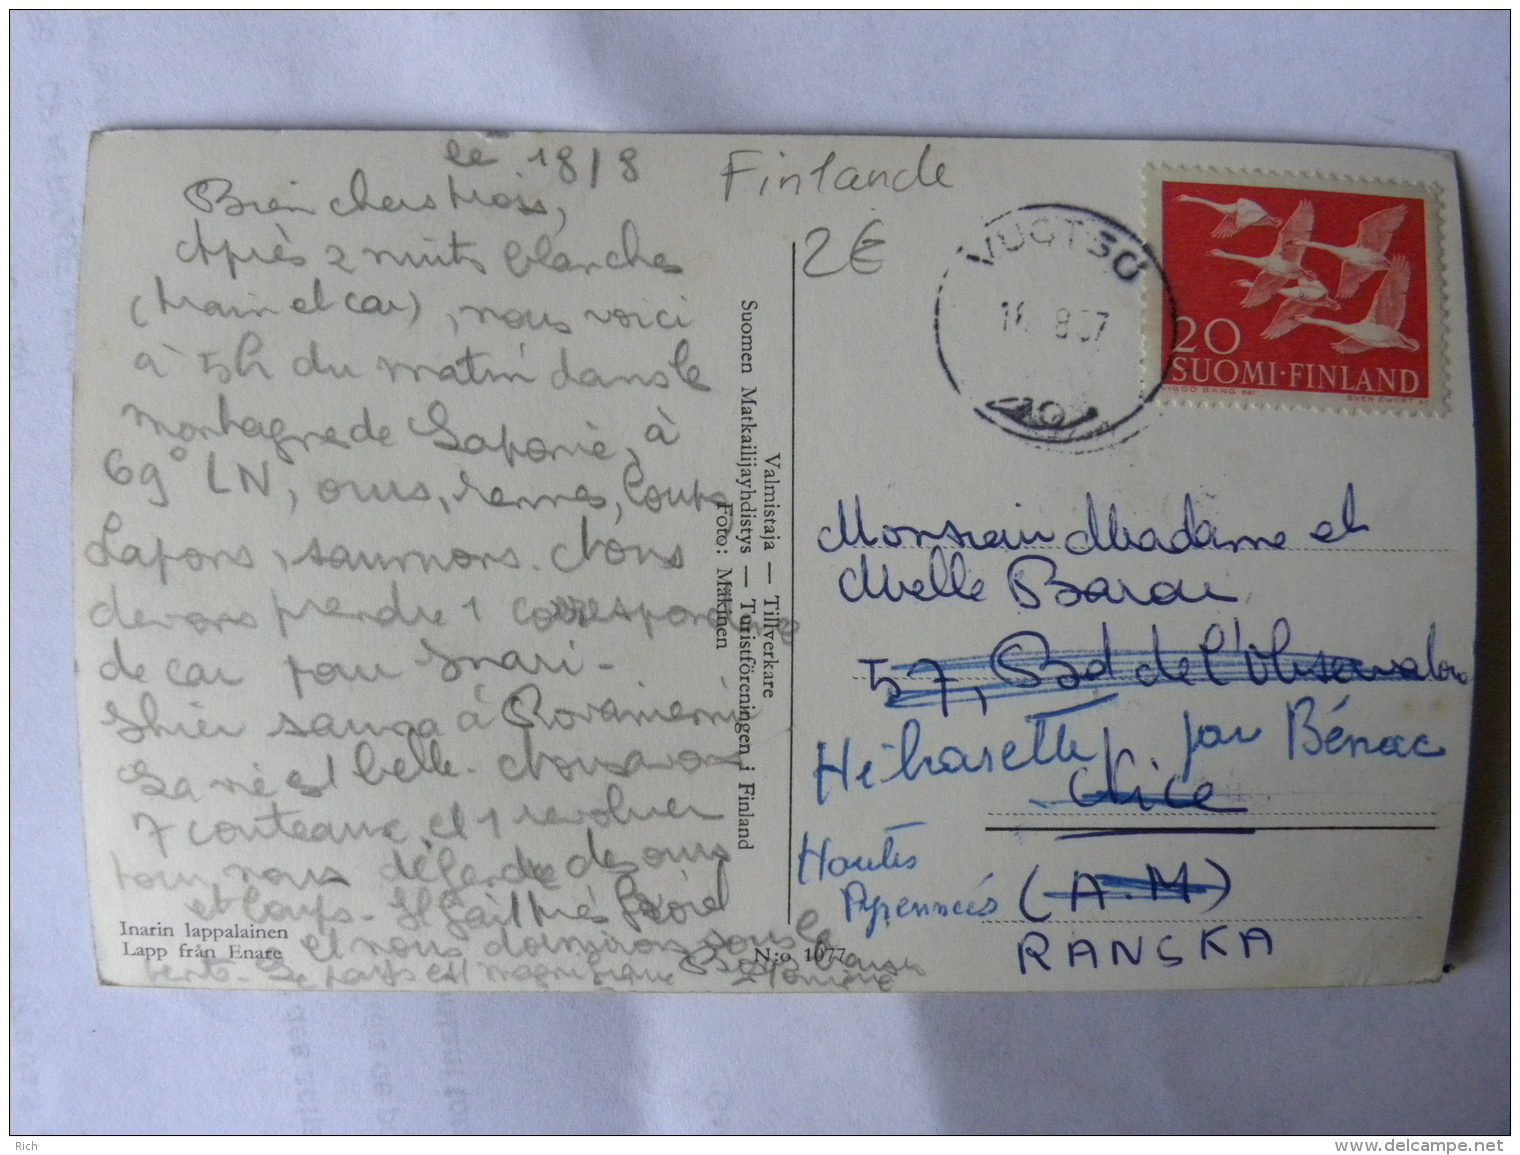 le 18/8
Bien chers tous,
Après 2 nuits blanches
(train et car), nous voici
à 5h du matin dans la
montagne de Laponie, à
69° LN, ours, rennes, loups,
Lapons, saumons. Nous
devons prendre 1 correspondance
de car pour Inari -
Hier sauna à Rovaniemi
La vie est belle. Nous avons
7 couteaux et 1 revolver
pour nous défendre des ours
et loups - Il fait très froid
et nous dormirons sous la
tente. Le pays est magnifique Bons baisers
Inarin lappalainen
Lapp från Enare
Valmistaja — Tillverkare
Suomen Matkailijayhdistys — Turistföreningen i Finland
Foto: Mäkinen
N:o 1077
Finlande
2€
VUOTSO
8 57
20
SUOMI·FINLAND
VIGGO BANG DEL.
SVEN EWERT SC
Monsieur Madame et
Melle Barou
57, Bd de l'Observatoire
par Bénac
Nice
Hautes
Pyrennées
(A.M)
RANSKA
Rich
delcampe.net